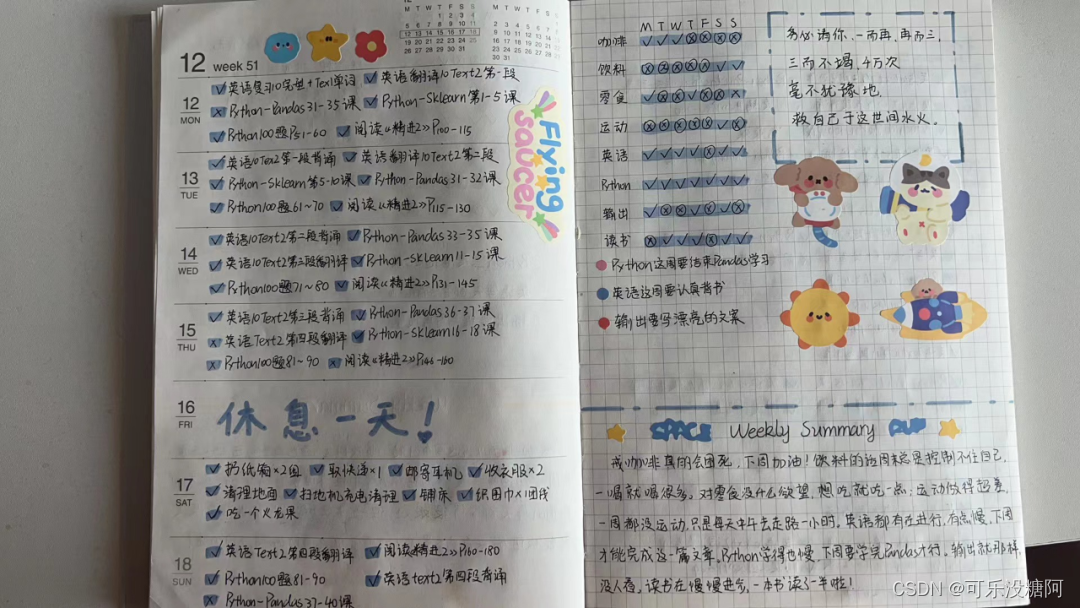 12 week 51
12
MON
✓英语复习10完型+Text单词 ✓英语翻译10Text2第一段
×Python-Pandas31-35课 ✓Python-Sklearn第1-5课
✓Python100题P51-60 ✓阅读《精进2》P100-115
13
TUE
✓英语10Text2第一段背诵 ✓英语翻译10Text2第二段
✓Python-Sklearn第5-10课 ✓Python-Pandas31-32课
✓Python100题61~70 ✓阅读《精进2》P115-130
14
WED
✓英语10Text2第二段背诵 ✓Python-Pandas33-35课
✓英语10Text2第三段翻译 ✓Python-Sklearn11-15课
✓Python100题71~80 ✓阅读《精进2》P131-145
15
THU
✓英语10Text2第三段背诵 ✓Python-Pandas36-37课
×英语Text2第四段翻译 ✓Python-Sklearn16-18课
×Python100题81~90 ×阅读《精进2》P146-160
16
FRI
休息一天!
17
SAT
✓扔纸箱×2组 ✓取快递×1 ✓邮寄耳机 ✓收衣服×2
✓清理地面 ✓扫地机充电清理 ✓铺床 ✓织围巾×1团线
✓吃一个火龙果
18
SUN
✓英语Text2第四段翻译 ✓阅读《精进2》P160-180
✓Python100题81-90 ✓英语text2第四段背诵
×Python-Pandas37-40课
Flying
saucer
M T W T F S S
咖啡
饮料
零食
运动
英语
Python
输出
读书
务必请你,一而再,再而三,
三而不竭,4万次
毫不犹豫地,
救自己于这世间水火。
Python这周要结束Pandas学习
英语这周要认真背书
输出要写漂亮的文案
SPACE Weekly Summary
戒咖啡真的会困死,下周加油!饮料的话周末总是控制不住自己,
一喝就喝很多。对零食没什么欲望,想吃就吃一点;运动做得超差,
一周都没运动,只是每天中午去走路一小时。英语都有在进行,有点慢,下周
才能完成这一篇文章。Python学得也慢,下周要学完Pandas才行。输出就那样,
没人看,读书在慢慢进步,一本书读了一半啦!
CSDN @可乐没糖阿